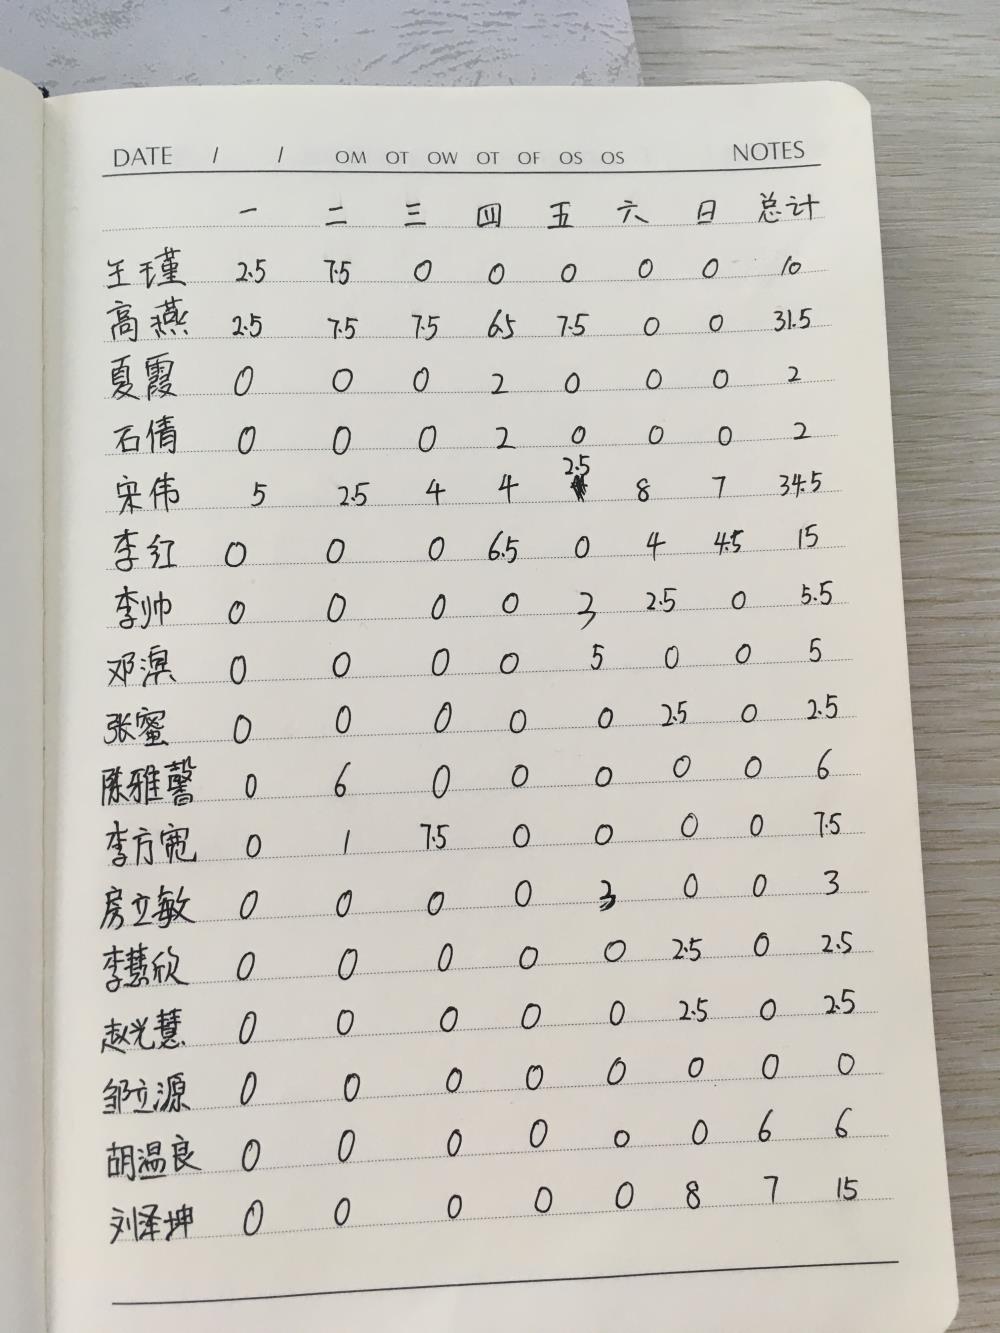 DATE / / OM OT OW OT OF OS OS NOTES
一 二 三 四 五 六 日 总计
王瑾 2.5 7.5 0 0 0 0 0 10
高燕 2.5 7.5 7.5 6.5 7.5 0 0 31.5
夏霞 0 0 0 2 0 0 0 2
石倩 0 0 0 2 0 0 0 2
宋伟 5 2.5 4 4 2.5 8 7 34.5
李红 0 0 0 6.5 0 4 4.5 15
李帅 0 0 0 0 3 2.5 0 5.5
邓淏 0 0 0 0 5 0 0 5
张蜜 0 0 0 0 0 2.5 0 2.5
陈雅馨 0 6 0 0 0 0 0 6
李方宽 0 1 7.5 0 0 0 0 7.5
房立敏 0 0 0 0 3 0 0 3
李慧欣 0 0 0 0 0 2.5 0 2.5
赵光慧 0 0 0 0 0 2.5 0 2.5
邹立源 0 0 0 0 0 0 0 0
胡温良 0 0 0 0 0 0 6 6
刘泽坤 0 0 0 0 0 8 7 15